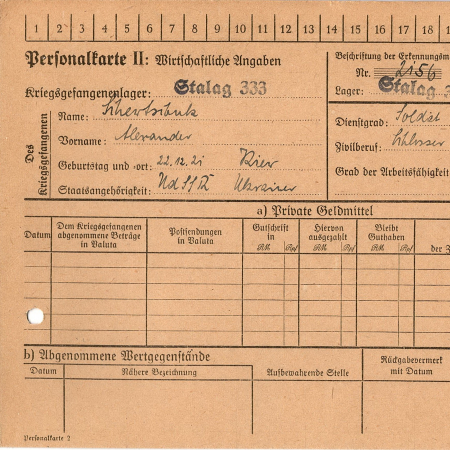 1 2 3 4 5 6 7 8 9 10 11 12 13 14 15 16 17 18
Personalkarte II: Wirtschaftliche Angaben
Beschriftung der Erkennungsm
Nr. 2156
Kriegsgefangenenlager: Stalag 333
Lager: Stalag 3
Des Kriegsgefangenen
Name:
Vorname: Alexander
Geburtstag und -ort: 22.12.21 Kiew
Staatsangehörigkeit: UdSSR Ukrainer
Dienstgrad: Soldat
Zivilberuf: Schlosser
Grad der Arbeitsfähigkeit
a) Private Geldmittel
Datum
Dem Kriegsgefangenen
abgenommene Beträge
in Valuta
Postsendungen
in Valuta
Gutschrift
in
RM. Rpf
Hiervon
ausgezahlt
RM. Rpf
Bleibt
Guthaben
RM. Rpf
der Z
b) Abgenommene Wertgegenstände
Datum
Nähere Bezeichnung
Aufbewahrende Stelle
Rückgabevermerk
mit Datum
Personalkarte 2